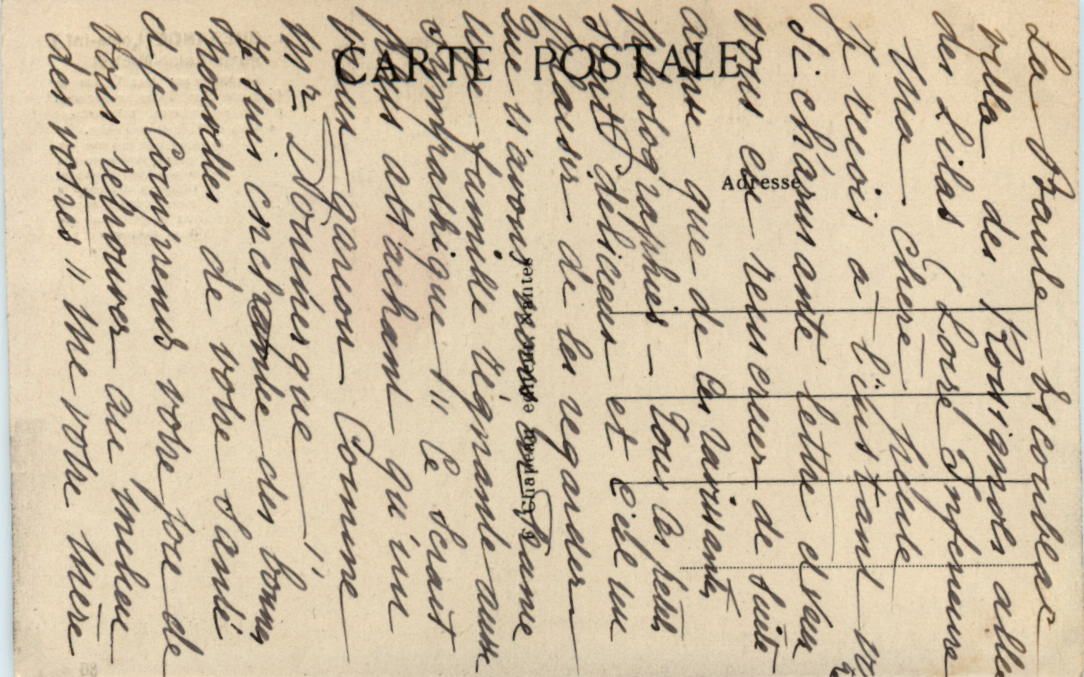 CARTE POSTALE
Adresse
Chapeau éditeur, Nantes
La Baule Escoublac
villa des Rossignols allée
des Lilas (Loire Inférieure
Ma chère petite
Je reçois à l'instant v
si charmante lettre et veux
vous en remercier de suite
ainsi que de ces ravissantes
photographies — Tous ces petits
sont délicieux et c'est un
plaisir de les regarder
Que n'avons nous en
une famille régnante aussi
sympathique !! Ce serait
plus attachant qu'un
vieux garçon comme
Mr Doumergue !
Je suis des bonnes
nouvelles de votre santé
et je comprends votre joie de
vous retrouver au milieu
des vôtres " me votre mère